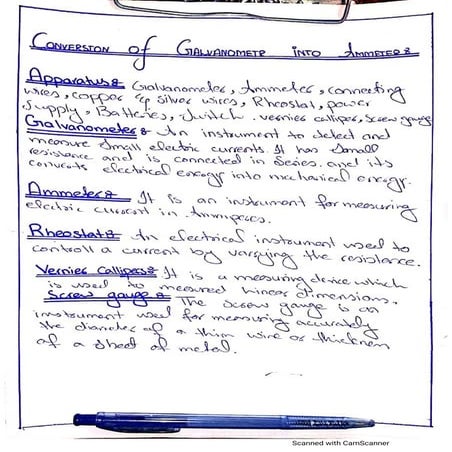 Conversion of Galvanometr into Ammeter:
Apparatus: Galvanometer, Ammeter, connecting
wires, copper & silver wires, Rheostat, power
supply, Batteries, Switch. vernier calliper, screw gauge
Galvanometer: An instrument to detect and
measure small electric currents. It has small
resistance and is connected in series. and its
converts electrical energy into mechanical energy.
Ammeter: It is an instrument for measuring
electric current in Amperes.
Rheostat: An electrical instrument used to
controll a current by varying the resistance.
Vernier Callipers: It is a measuring device which
is used to measured linear dimensions.
Screw gauge: The screw gauge is an
instrument used for measuring accurately
the diameter of a thin wire or thickness
of a sheet of metal.
Scanned with CamScanner